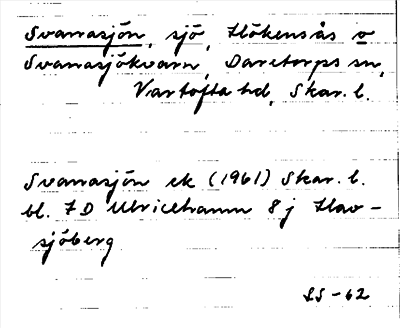 Svanasjön, sjö, Hökensås o
Svanasjökvarn, Daretorps sn,
Vartofta hd, Skar. l.
Svanasjön ek (1961) Skar. l.
bl. 7D Ulricehamn 8j Hav-
sjöberg
SS-62